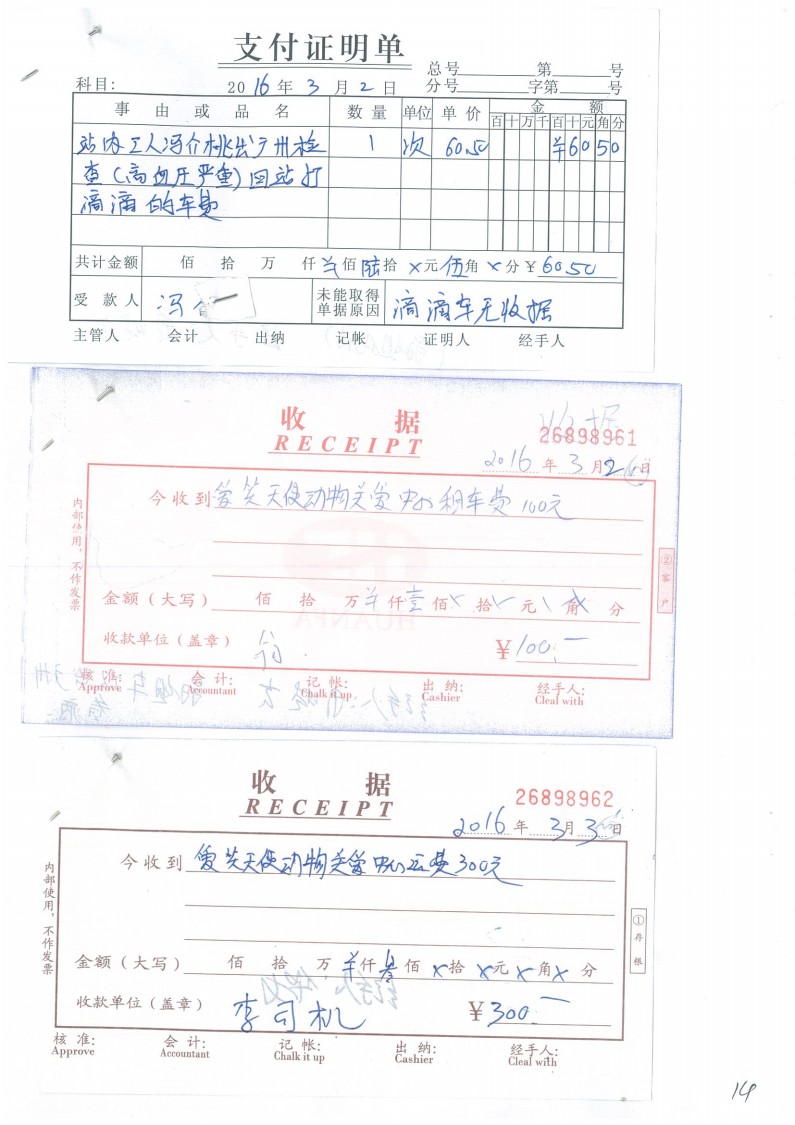 支付证明单
总号 第 号
科目: 2016 年 3 月 2 日 分号 字第 号
事 由 或 品 名 数 量 单位 单 价 金 额
百 十 万 千 百 十 元 角 分
站内工人冯介桃出广州检 1 次 60.50 ¥60 50
查(高血压严重)回站打
滴滴的车费
共计金额 佰 拾 万 仟 佰 陆 拾 x 元 伍 角 x 分 ¥ 60.50
受 款 人 冯 未能取得单据原因 滴滴车无收据
主管人 会计 出纳 记帐 证明人 经手人
收 据
RECEIPT
26898961
2016 年 3 月 2 日
今收到 爱笑天使动物关爱中心租车费100元
内部使用,不作发票
②客户
金额(大写) 佰 拾 万 仟 壹 佰 x 拾 元 角 分
收款单位(盖章) ¥100.一
核 准: 会 计: 记 帐: 出 纳: 经手人:
Approve Accountant Chalk it up Cashier Cleal with
收 据
RECEIPT
26898962
2016 年 3 月 3 日
今收到 爱笑天使动物关爱中心运费300元
内部使用,不作发票
①存根
金额(大写) 佰 拾 万 仟 叁 佰 x 拾 x 元 x 角 x 分
收款单位(盖章) 李司机 ¥300.一
核 准: 会 计: 记 帐: 出 纳: 经手人:
Approve Accountant Chalk it up Cashier Cleal with
14